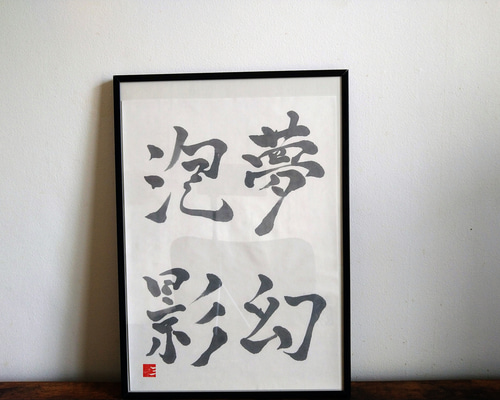 夢幻
泡影